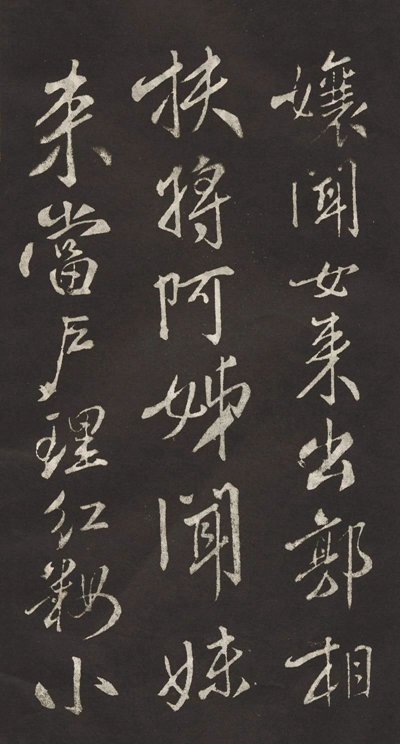 孃聞女來出郭相
扶將阿姊聞妹
來當户理紅妝小